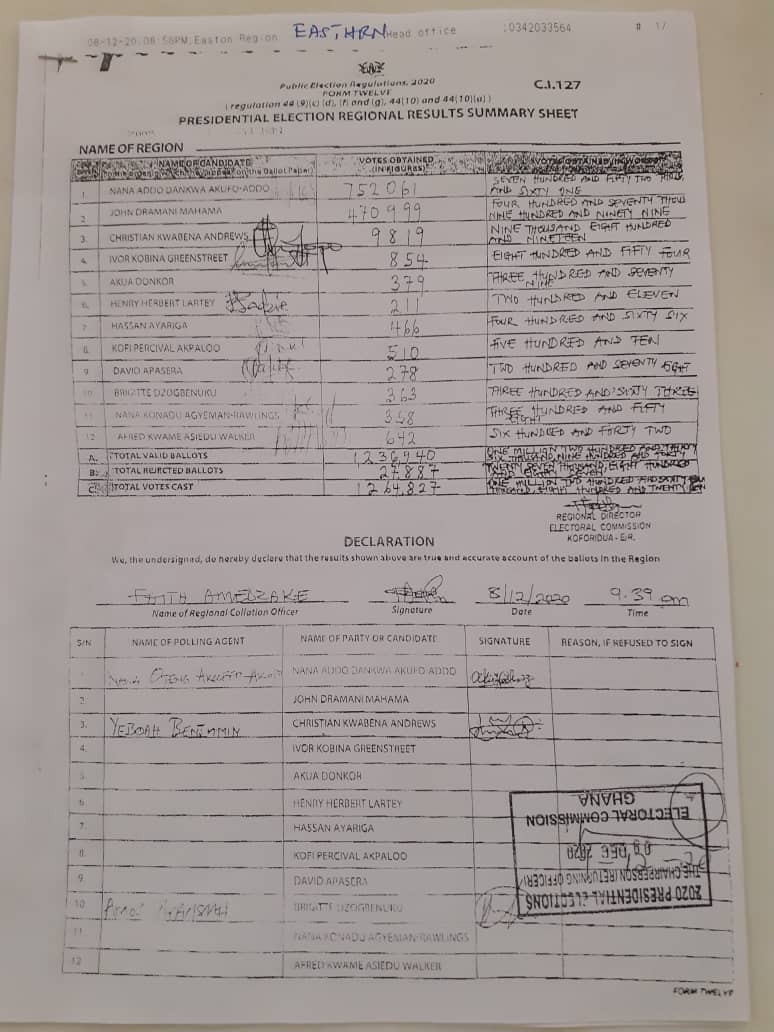 08-12-20;08:56PM;Easton Region EASTHRN Head office ;0342033564 # 17
Public Election Regulations, 2020
C.I.127
FORM TWELVE
(regulation 44 (9)(c) (d), (f) and (g), 44(10) and 44(10)(a))
PRESIDENTIAL ELECTION REGIONAL RESULTS SUMMARY SHEET
NAME OF REGION
NAME OF CANDIDATE VOTES OBTAINED
on the Ballot Paper) (IN FIGURES)
1. NANA ADDO DANKWA AKUFO-ADDO 752061 SEVEN HUNDRED AND FIFTY TWO THOUS
AND SIXTY ONE
2. JOHN DRAMANI MAHAMA 470999 FOUR HUNDRED AND SEVENTY THOU
NINE HUNDRED AND NINETY NINE
3. CHRISTIAN KWABENA ANDREWS 9819 NINE THOUSAND EIGHT HUNDRED
AND NINETEEN
4. IVOR KOBINA GREENSTREET 854 EIGHT HUNDRED AND FIFTY FOUR
5. AKUA DONKOR 379 THREE HUNDRED AND SEVENTY
NINE
6. HENRY HERBERT LARTEY 211 TWO HUNDRED AND ELEVEN
7. HASSAN AYARIGA 466 FOUR HUNDRED AND SIXTY SIX
8. KOFI PERCIVAL AKPALOO 510 FIVE HUNDRED AND TEN
9 DAVID APASERA 278 TWO HUNDRED AND SEVENTY EIGHT
10 BRIGITTE DZOGBENUKU 363 THREE HUNDRED AND SIXTY THREE
11 NANA KONADU AGYEMAN-RAWLINGS 358 THREE HUNDRED AND FIFTY
EIGHT
12 AFRED KWAME ASIEDU WALKER 642 SIX HUNDRED AND FORTY TWO
A. TOTAL VALID BALLOTS 1,236,940 ONE MILLION TWO HUNDRED AND THIRTY
SIX THOUSAND, NINE HUNDRED AND FORTY
B. TOTAL REJECTED BALLOTS 27,887 TWENTY SEVEN THOUSAND, EIGHT HUNDRED
AND EIGHTY SEVEN
C. TOTAL VOTES CAST 1264,827 ONE MILLION TWO HUNDRED AND SIXTY FOUR
THOUSAND, EIGHT HUNDRED AND TWENTY SEVEN
REGIONAL DIRECTOR
ELECTORAL COMMISSION
KOFORIDUA - E/R.
DECLARATION
We, the undersigned, do hereby declare that the results shown above are true and accurate account of the ballots in the Region
FAITH AMEDZAKE 8/12/2020 9.39 pm
Name of Regional Collation Officer Signature Date Time
S/N NAME OF POLLING AGENT NAME OF PARTY OR CANDIDATE SIGNATURE REASON, IF REFUSED TO SIGN
1 NANA ADDO DANKWA AKUFO ADDO
2. JOHN DRAMANI MAHAMA
3. YEBOAH BENJAMIN CHRISTIAN KWABENA ANDREWS
4. IVOR KOBINA GREENSTREET
5. AKUA DONKOR
6 HENRY HERBERT LARTEY
7. HASSAN AYARIGA
8. KOFI PERCIVAL AKPALOO
9 DAVID APASERA
10 BRIGITTE DZOGBENUKU
11 NANA KONADU AGYEMAN-RAWLINGS
12 AFRED KWAME ASIEDU WALKER
2020 PRESIDENTIAL ELECTIONS
THE CHAIRPERSON (RETURNING OFFICER)
09 DEC 2020
ELECTORAL COMMISSION
GHANA
FORM TWELVE